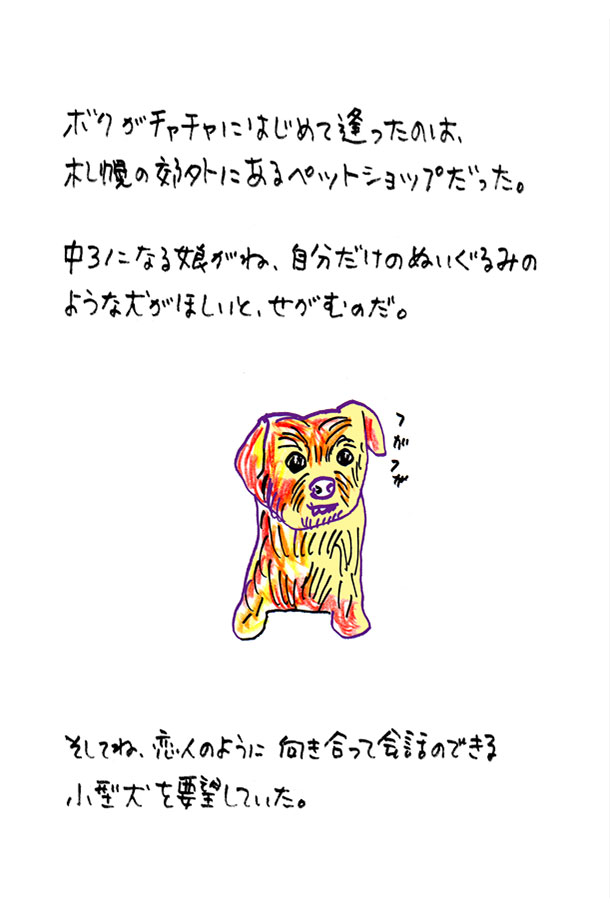 ボクがチャチャにはじめて逢ったのは、
札幌の郊外にあるペットショップだった。
中3になる娘がね、自分だけのぬいぐるみの
ような犬がほしいと、せがむのだ。
フガフガ
そしてね、恋人のように向き合って会話のできる
小型犬を要望していた。